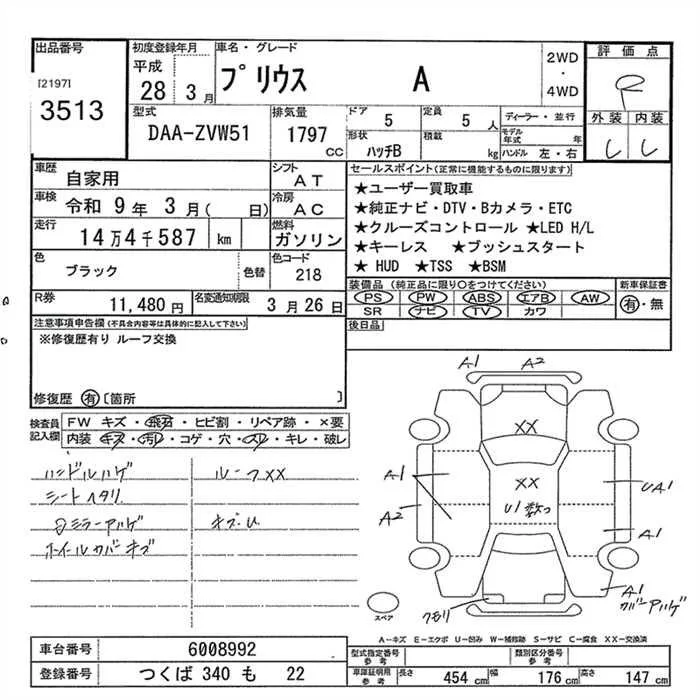 出品番号
[2197]
3513
初度登録年月
平成
28 3月
車名・グレード
プリウス A
2WD
・
4WD
評価点
R
外装 内装
型式
DAA-ZVW51
排気量
1797
CC
ドア 5
定員 5 人
形状
ハッチB
積載
kg
ディーラー・並行
モデル
年式 年
ハンドル 左・右
車歴
自家用
シフト
AT
車検 令和 9年 3月( 日)
冷房
AC
走行
14万4千587 km
燃料
ガソリン
色
ブラック
色替
色コード
218
R券 11,480 円
名変通知期限 3月26日
セールスポイント(正常に機能するものに限ります)
★ユーザー買取車
★純正ナビ・DTV・Bカメラ・ETC
★クルーズコントロール ★LED H/L
★キーレス ★プッシュスタート
★ HUD ★TSS ★BSM
装備品 (純正品に限り○をつけてください)
新車保証書
PS PW ABS エアB AW
SR ナビ TV カワ
有・無
後日品
注意事項申告欄(不具合内容等は具体的に記入して下さい)
※修復歴有り ルーフ交換
修復歴 有 〔箇所 〕
検査員
記入欄
FW キズ・飛石・ヒビ割・リペア跡・×要
内装 キズ・汚レ・コゲ・穴・スレ・キレ・破レ
ハンドルハゲ
ルーフXX
シートヘタリ
ミラーアルゲ
キズ.U
ホイルカバーキズ
A1 A2
XX
A1
XX
U1数つ
UA1
A2
A1
A1
クモリ
スペア
A-キズ E-エクボ U-凹み W-補修跡 S-サビ C-腐食 XX-交換済
車台番号 6008992
登録番号 つくば 340 も 22
型式指定番号
参考
類別区分番号
参考
車庫証明用
参考
長さ 454 cm 幅 176 cm 高さ 147 cm